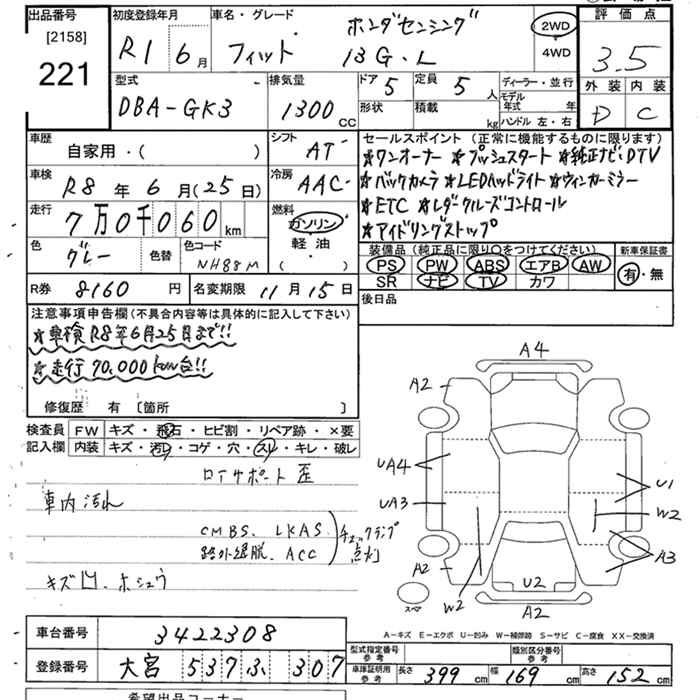 出品番号 初度登録年月 車名・グレード 評価点
[2158] ホンダセンシング 2WD
221 R1 6月 フィット 13G・L ・ 4WD 3.5
型式 排気量 ドア 5 定員 5人 ディーラー・並行 外装 内装
DBA-GK3 1300cc 形状 積載 kg モデル年式 年 D C
ハンドル 左・右
車歴 自家用・( ) シフト AT セールスポイント (正常に機能するものに限ります)
☆ワンオーナー ☆プッシュスタート ☆純正ナビ・DTV
車検 R8年6月(25日) 冷房 AAC ☆バックカメラ ☆LEDヘッドライト ☆ウィンカーミラー
走行 7万0千060km 燃料 ガソリン ☆ETC ☆レダクルーズコントロール
軽油 ☆アイドリングストップ
色 グレー 色替 色コード NH88M ・ 装備品 (純正品に限り〇をつけてください) 新車保証書
PS PW ABS エアB AW 有・無
SR ナビ TV カワ
R券 8160円 名変期限 11月15日 後日品
注意事項申告欄 (不具合内容等は具体的に記入して下さい)
☆車検R8年6月25日まで!!
☆走行70,000km台!!
修復歴 有 [箇所 ]
検査員 FW キズ・飛石・ヒビ割・リペア跡・×要
記入欄 内装 キズ・汚れ・コゲ・穴・スレ・キレ・破レ
ロアサポート 歪
車内汚れ
CMBS. LKAS. チェックランプ
路外逸脱. ACC 点灯
キズ凹. ホシュウ
A4
A2
UA4
UA3
U1
W2
A3
A2
U2
W2
A2
スペア
A-キズ E-エクボ U-凹み W-補修跡 S-サビ C-腐食 XX-交換済
車台番号 3422308
型式指定番号 参考 類別区分番号 参考
登録番号 大宮 537 ふ 307 車庫証明用 参考 長さ 399cm 幅 169cm 高さ 152cm
希望出品コーナー